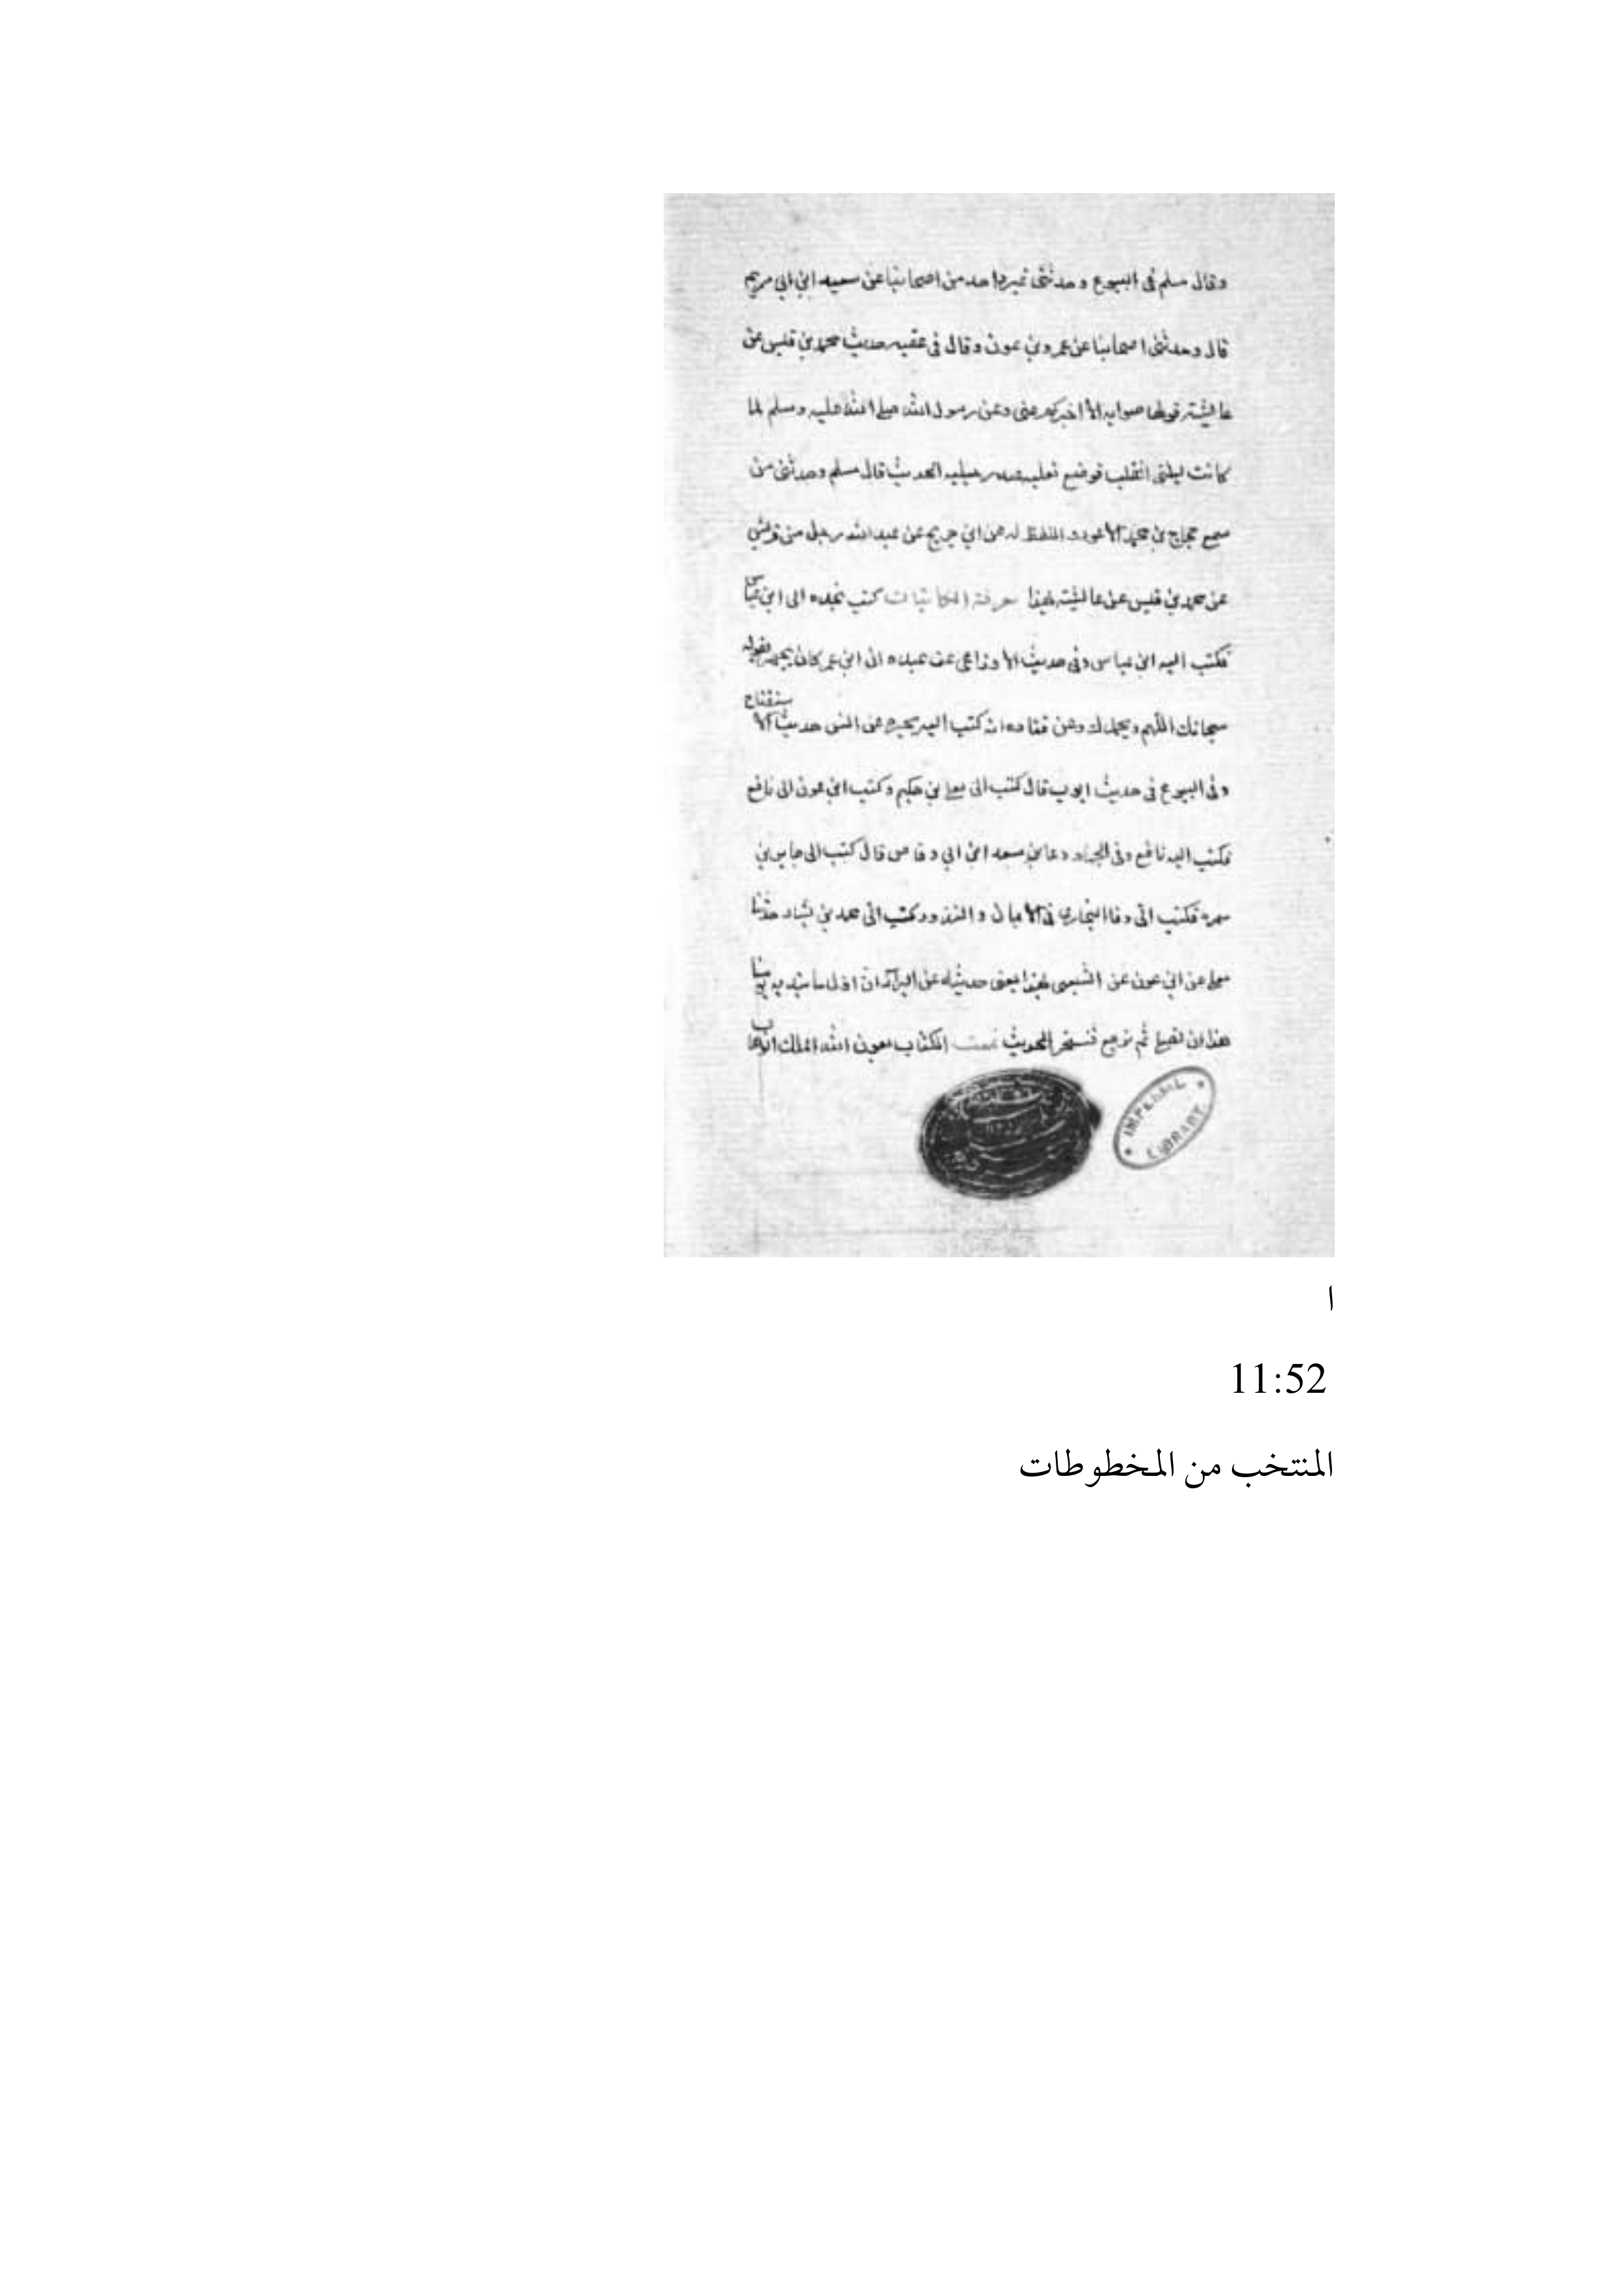 وقال مسلم فى البيوع وحدثنى غير واحد من اصحابنا عن سعيد ابن ابي مريم
قال وحدثنى اصحابنا عن عمرو بن عون وقال فى عقيب حديث محمد بن قيس عن
عايشة قولها صوابه الا اخبركم عنى وعن رسول الله صلى الله عليه وسلم لما
كانت ليلتى انقلب فوضع نعليه عند رجليه الحديث قال مسلم وحدثنى من
سمع حجاج بن محمد الاعور واللفظ له عن ابن جريج عن عبد الله رجل من قريش
عن محمد بن قيس عن عايشة بهذا معرفة المكاتبات كتب نجده الى ابن عباس
فكتب اليه ابن عباس وفى حديث الاوزاعى عن عبده ان ابن عمر كان يجهر بقوله
سبحانك اللهم وبحمدك وعن قتاده انه كتب اليه يخبره عن انس حديث الاستفتاح
وفى البيوع فى حديث ايوب قال كتب الى يعلى بن حكيم وكتب ابن عون الى نافع
فكتب اليه نافع وفى الجهاد وعامر بن سعد ابن ابي وقاص قال كتب الى جابر بن
سمره فكتب الى وقال البخارى فى الايمان والنذور كتب الى محمد بن بشار حدثنا
معاذ عن ابن عون عن الشعبى بهذا يعنى حديثه عن البراء ان اول ما نبدء به يومنا
هذا ان نصلى ثم نرجع فننحر الحديث تمت الكتاب بعون الله الملك الوهاب
IMPERIAL
LIBRARY
ا
11:52
المنتخب من المخطوطات